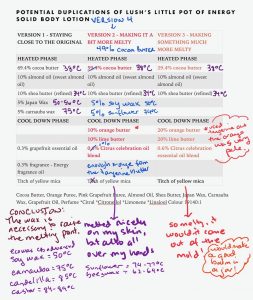 POTENTIAL DUPLICATIONS OF LUSH'S LITTLE POT OF ENERGY
SOLID BODY LOTION
VERSION 4
VERSION 1 - STAYING CLOSE TO THE ORIGINAL
VERSION 2 - MAKING IT A BIT MORE MELTY
49% cocoa butter
VERSION 3 - MAKING SOMETHING MUCH MORE MELTY
HEATED PHASE
HEATED PHASE
HEATED PHASE
69.7% cocoa butter 38°C
38°C
29.4% cocoa butter 38°C
10% almond oil (sweet almond oil)
10% almond oil (sweet almond oil)
10% almond oil (sweet almond oil)
10% shea butter (refined) 34°C
10% shea butter (refined) 34°C
10% shea butter (refined) 34°C
5% Japan Wax 50-56°C
5% soy wax 50°C
5% carnauba wax
5%
COOL DOWN PHASE
COOL DOWN PHASE
COOL DOWN PHASE
10% orange butter
20% orange butter
10% lime butter
20% lime butter
0.3% grapefruit essential oil
0.6% Citrus celebration oil blend
0.6% Citrus celebration essential oil blend
0.3% fragrance - Energy fragrance oil
enough fragrance from the
Tinch of yellow mica
Tinch of yellow mica
Tinch of yellow mica
Cocoa Butter, Orange Puree, Pink Grapefruit Juice, Almond Oil, Shea Butter, Japan Wax, Carnauba
Wax, Grapefruit Oil, Perfume *Citral *Citronellol *Limonene *Linalool Colour 19140:1
CONCLUSION:
The wax is
necessary to raise
the melting point.
soy wax = 50°C
carnauba = 85°C
candelilla = 85°C
cast
melted nicely
on my skin,
but also all
over my hands
sunflower = 74-77°C
beeswax = 62-64°C
so melty, it
wouldn't come
out of the
mold
would make
a great
balm in
a jar!